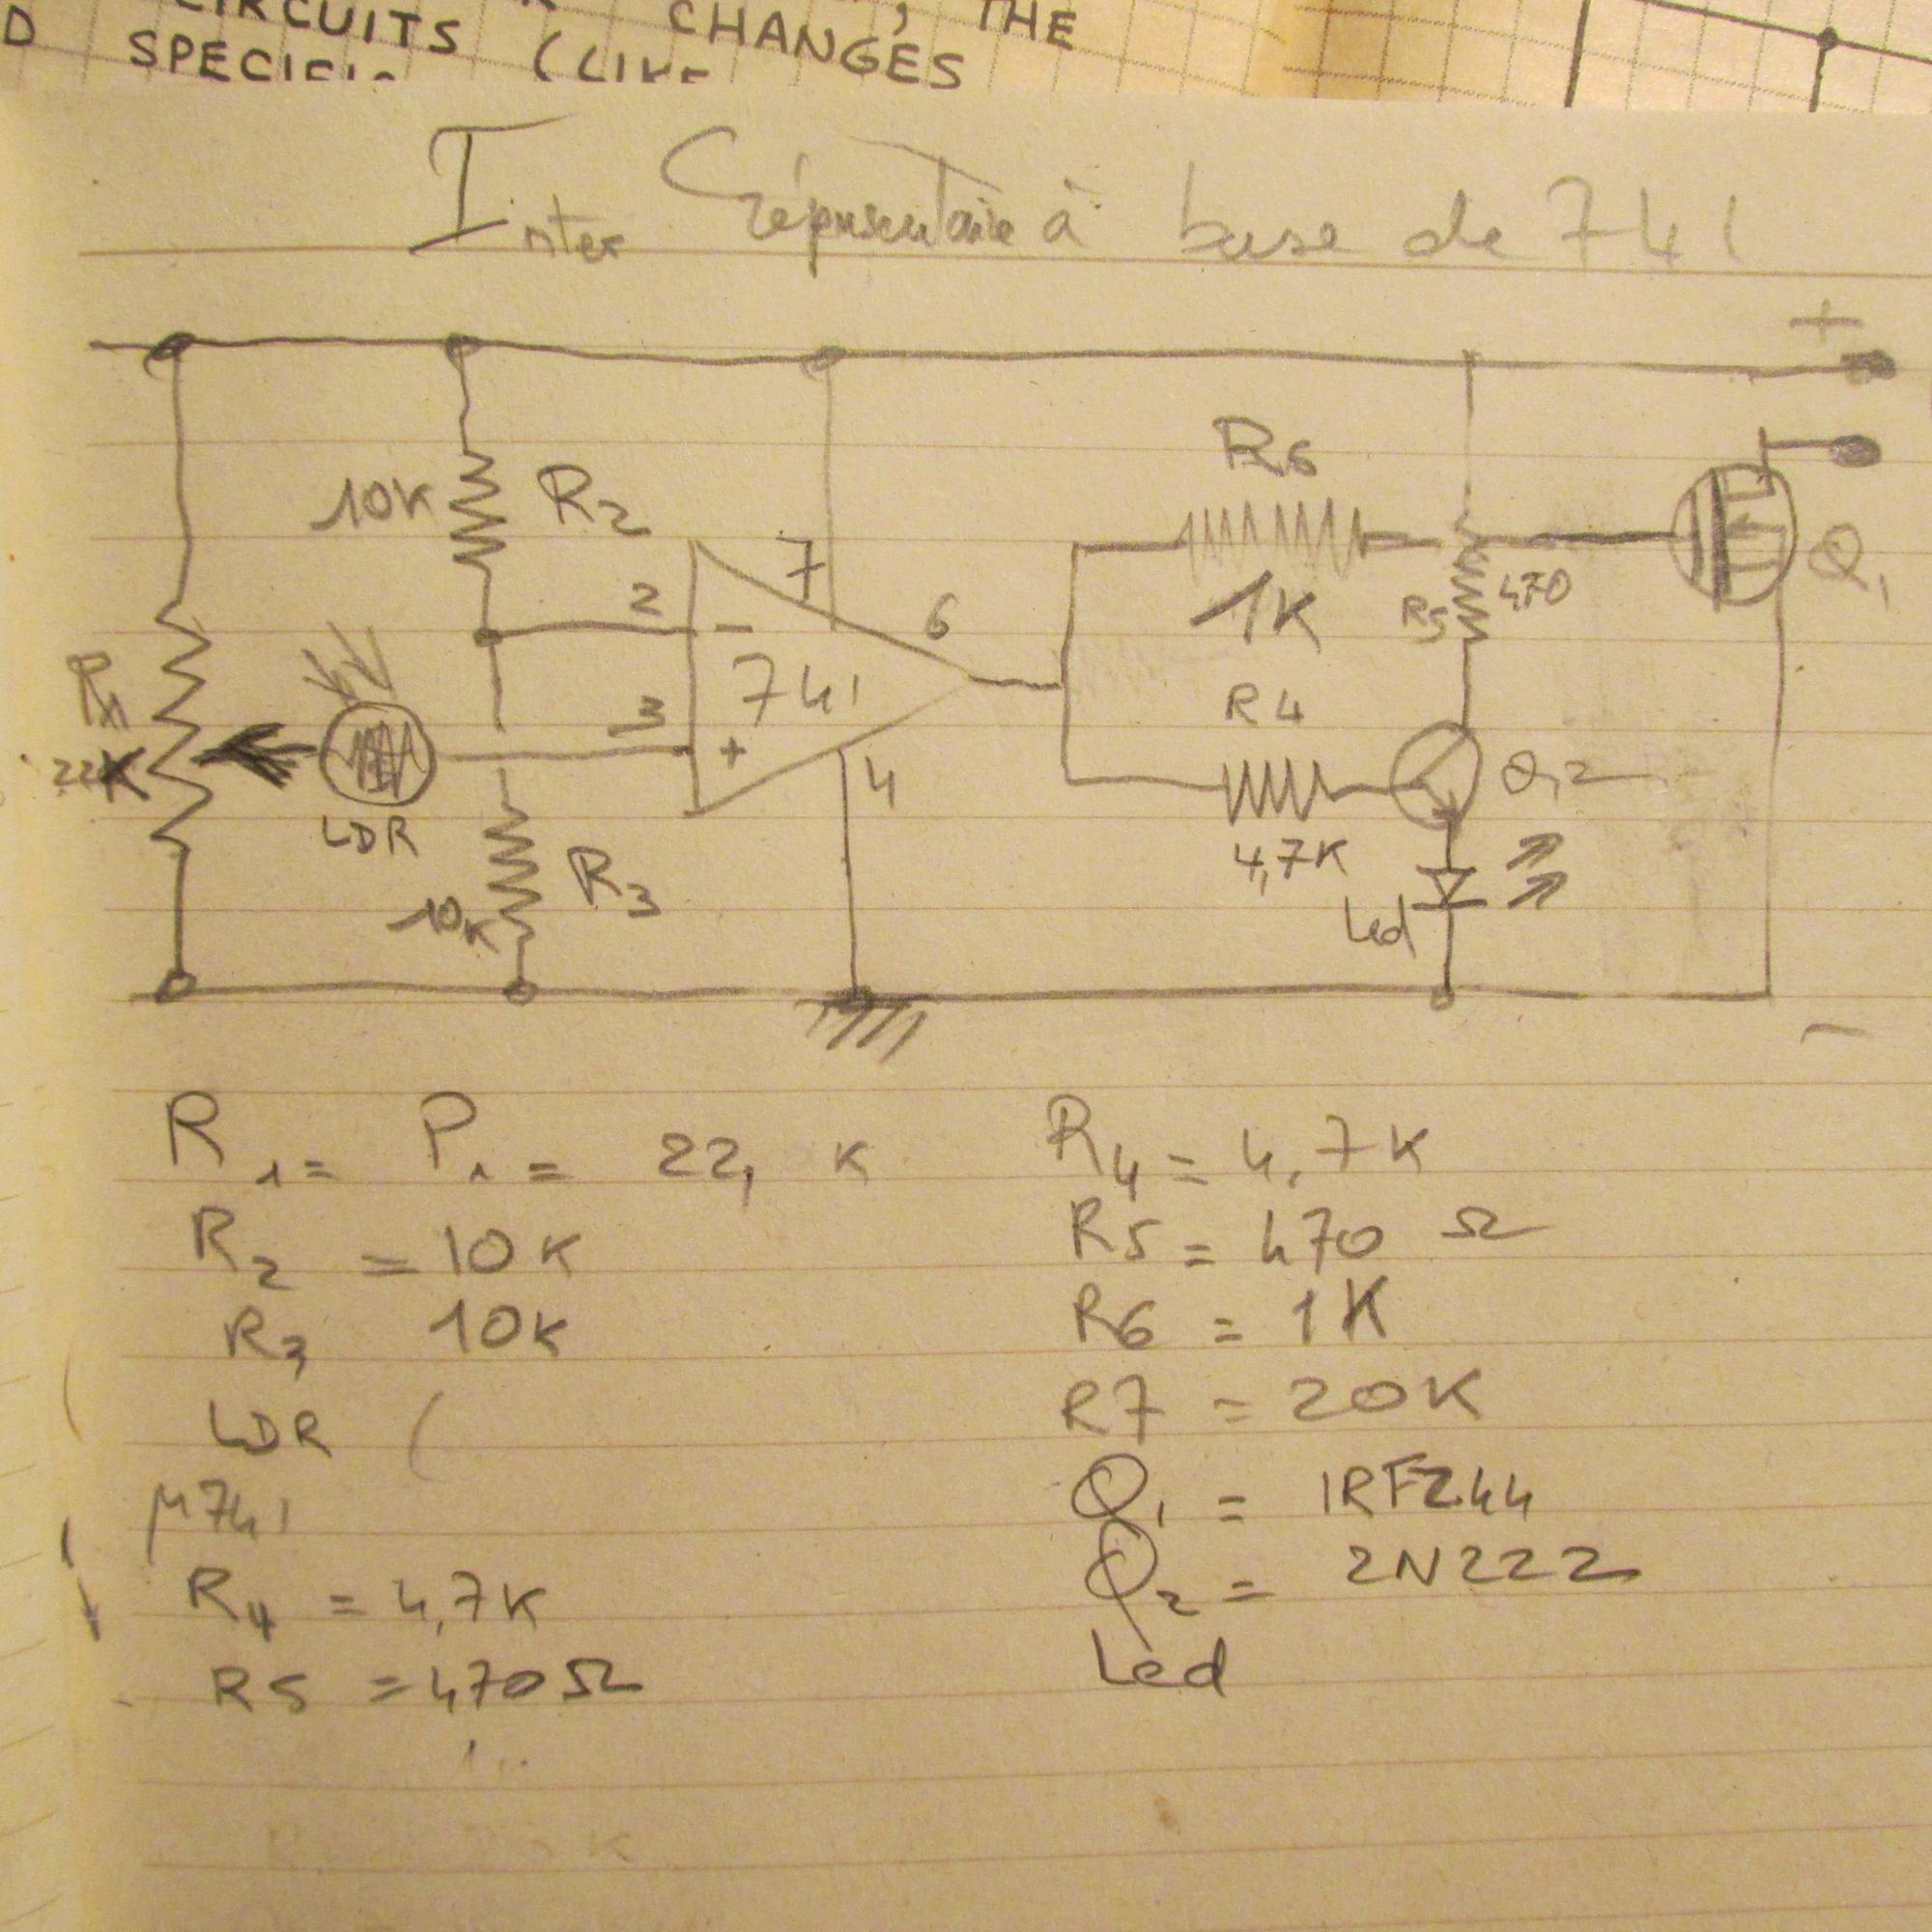 D CIRCUITS CHANGES, THE
SPECIFIC (LIKE
Inter Crépusculaire à base de 741
+
R6
10K R2
7
Q1
2
6
1K
R5 470
-
741
R1
3
R4
22K
+
Q2
LDR
4
4,7K
R3
10K
Led
-
R1 = P1 = 22, K
R2 = 10K
R3 10K
LDR (
µ741
R4 = 4,7K
R5 = 470 Ω
R4 = 4,7K
R5 = 470 Ω
R6 = 1K
R7 = 20K
Q1 = IRFZ44
Q2 = 2N222
Led